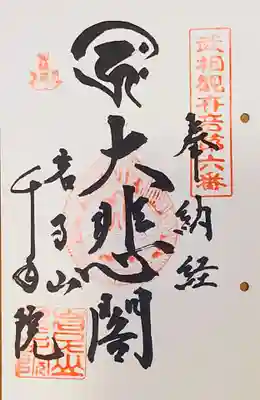 武相観世音第六番
奉納経
大悲閣
千手院